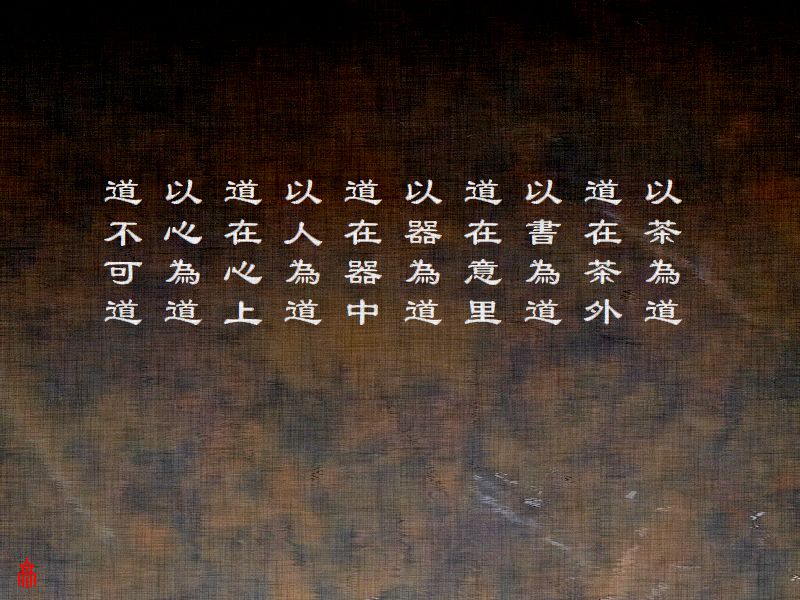 以茶為道
道在茶外
以書為道
道在意里
以器為道
道在器中
以人為道
道在心上
以心為道
道不可道